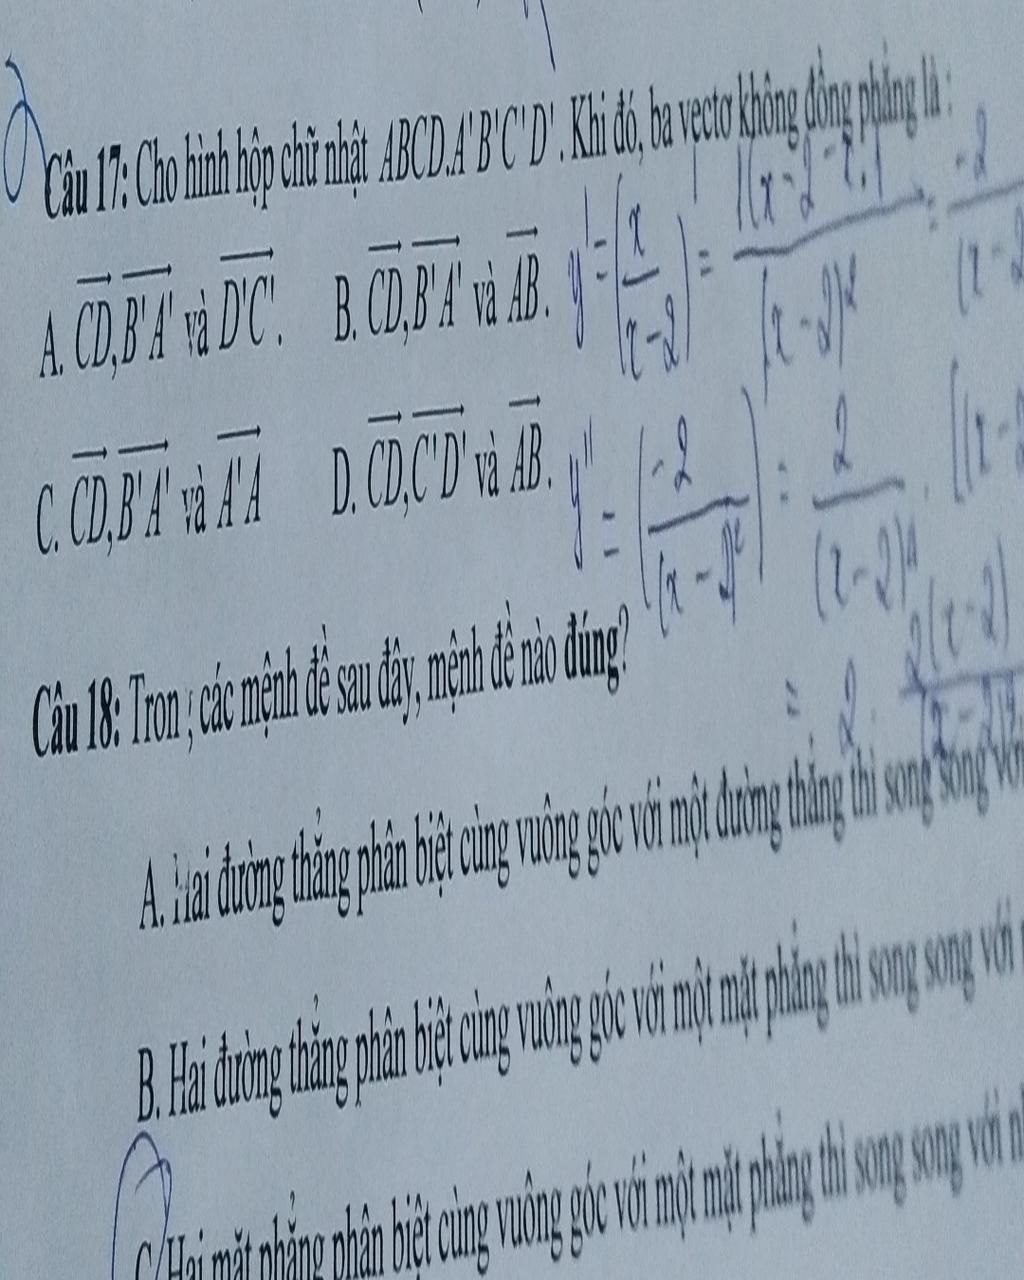 Câu 17: Cho hình hộp chữ nhật ABCD.A'B'C'D'. Khi đó, ba vectơ không đồng phẳng là :
A. CD, B'A' và D'C'. B. CD, B'A' và AB.
C. CD, B'A' và A'A D. CD, C'D' và AB.
y' = (x/(x-2))' = 1(x-2-x.1/(x-2)² = -2/(x-2
y'' = (-2/(x-2)²) = 2/(x-2)⁴ . [(x-2
= 2. 2(x-2)/(x-2)⁴.
Câu 18: Tron ; các mệnh đề sau đây, mệnh đề nào đúng?
A. Hai đường thẳng phân biệt cùng vuông góc với một đường thẳng thì song song với
B. Hai đường thẳng phân biệt cùng vuông góc với một mặt phẳng thì song song với
C. Hai mặt phẳng phân biệt cùng vuông góc với một mặt phẳng thì song song với